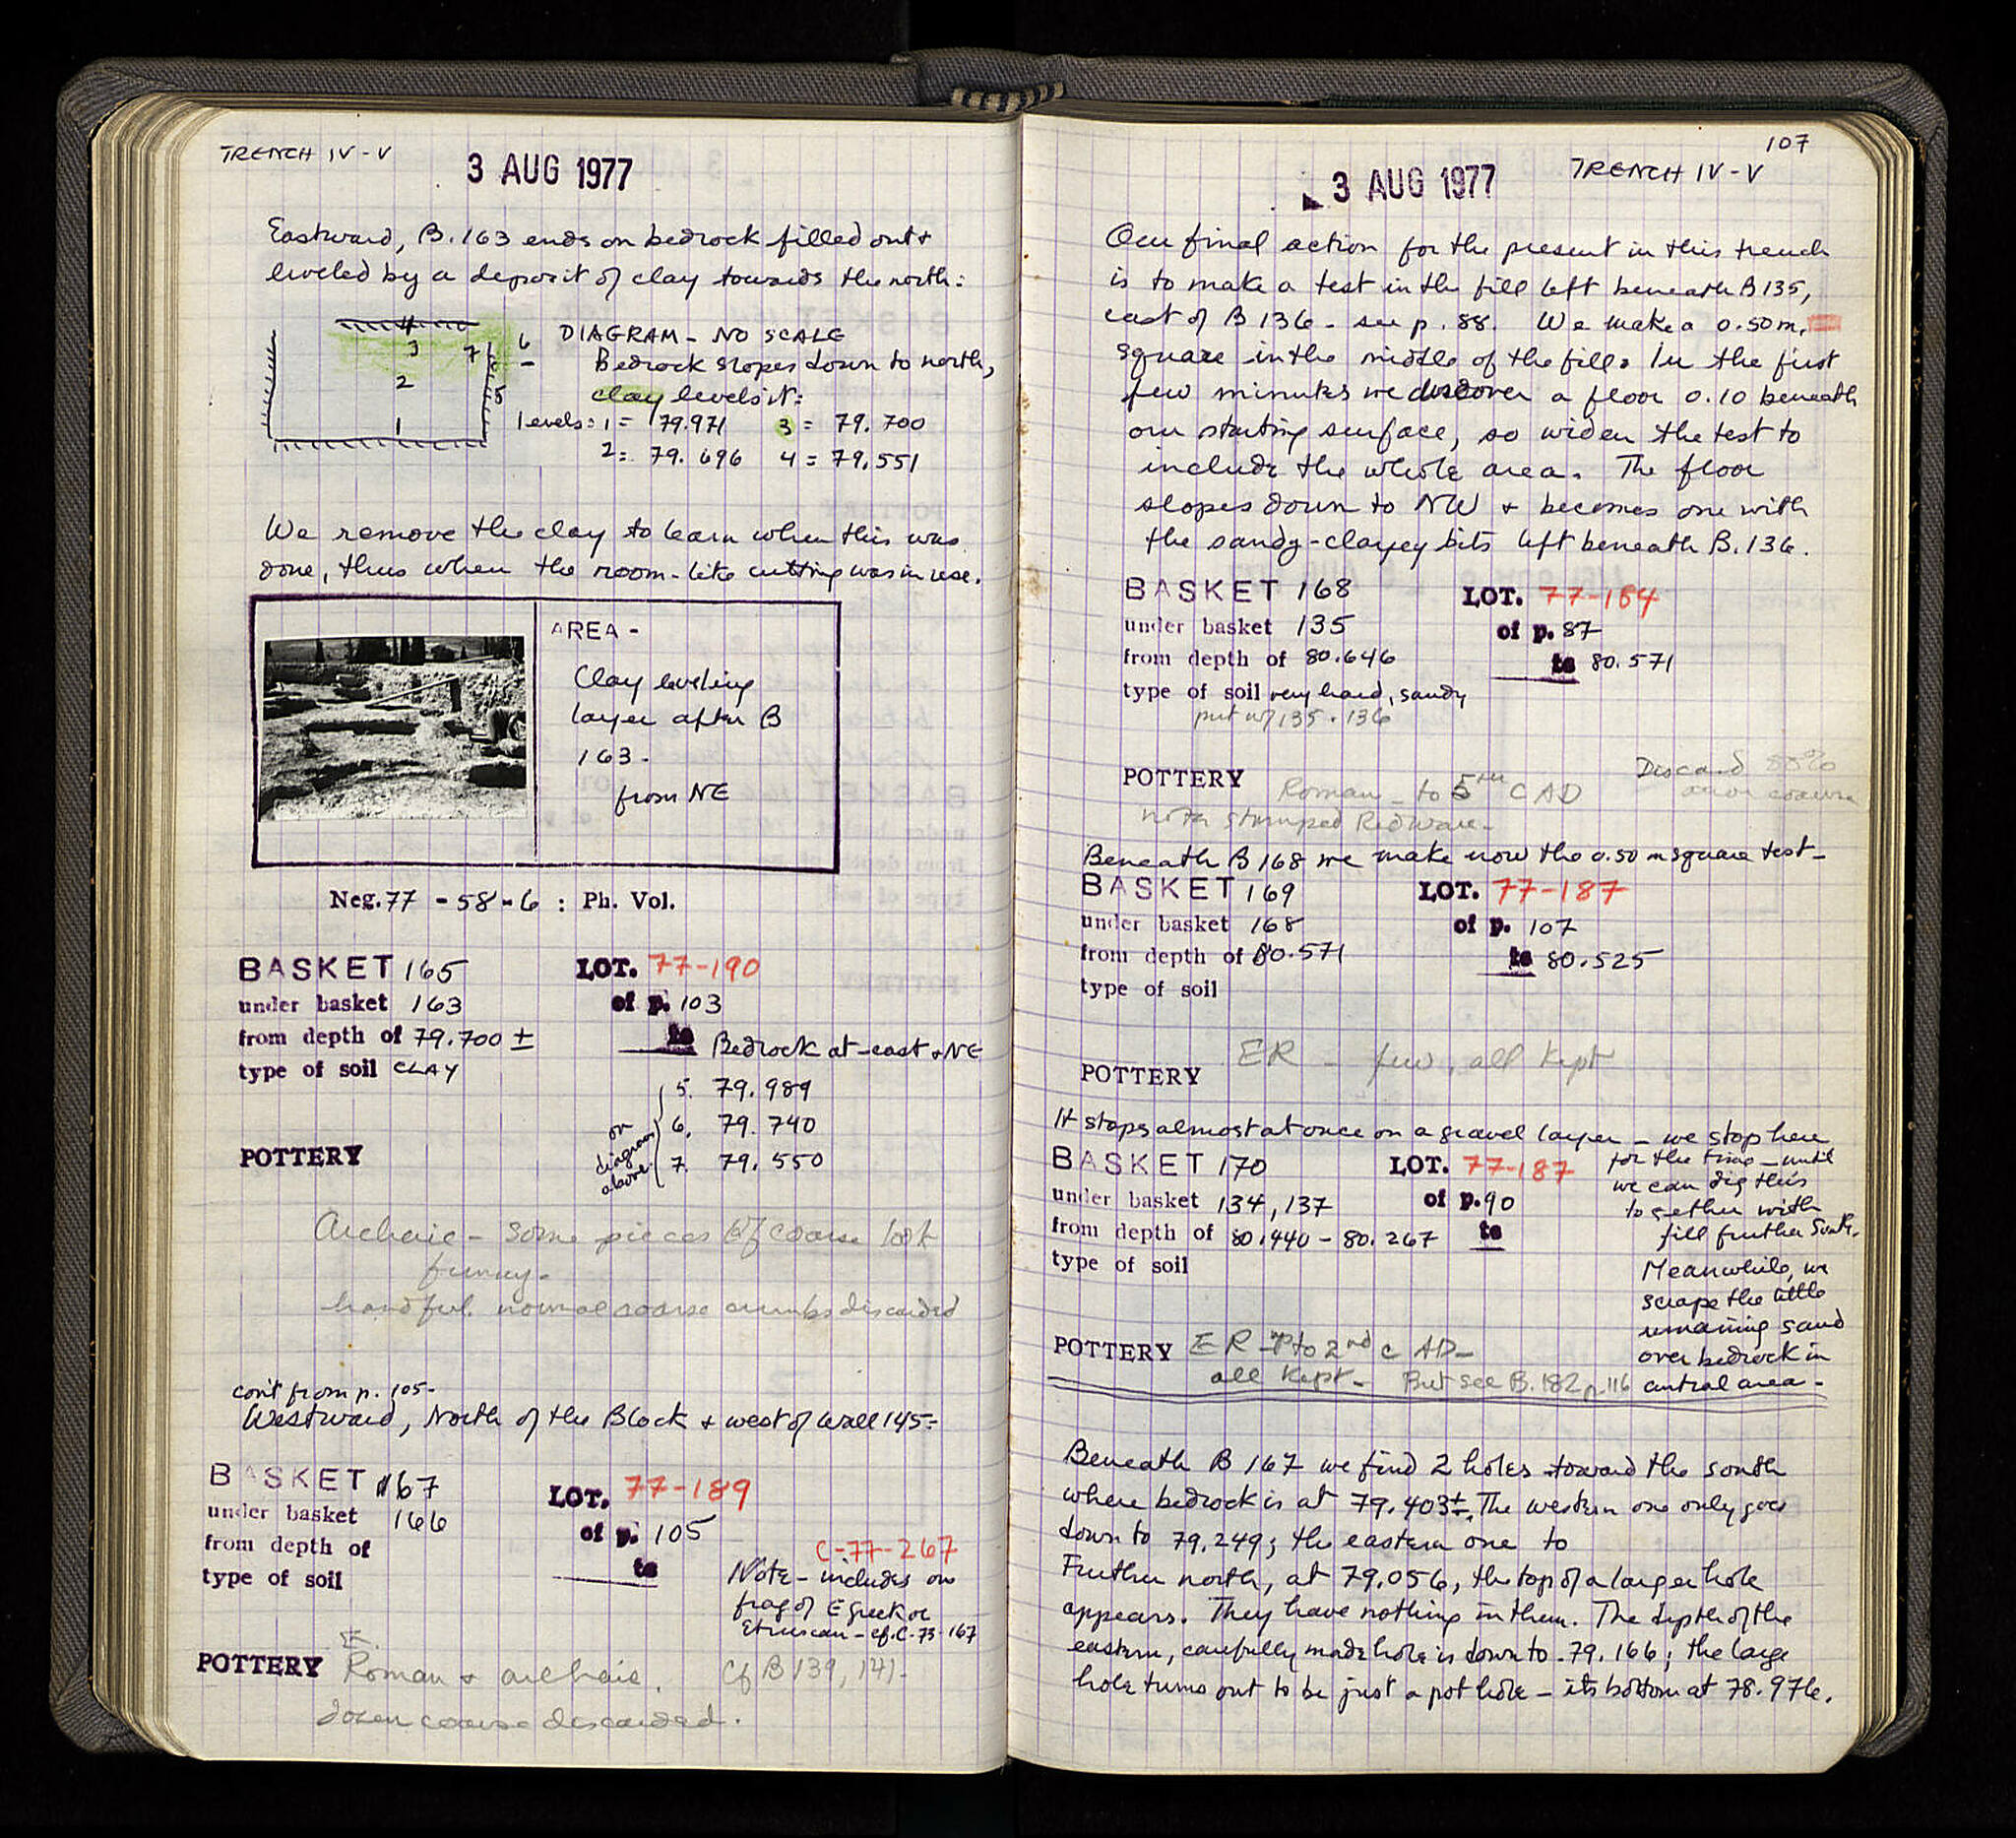 TRENCH IV-V
3 AUG 1977
Eastward, B.163 ends on bedrock filled out +
leveled by a deposit of clay towards the north:
4
3 7 6
2 5
1
DIAGRAM - NO SCALE
Bedrock slopes down to north,
clay levels it:
levels: 1 = 79.971 3 = 79.700
2 = 79.696 4 = 79.551
We remove the clay to learn when this was
done, thus when the room-like cutting was in use.
AREA -
Clay leveling
layer after B
163 -
from NE
Neg. 77 - 58 - 6 : Ph. Vol.
BASKET 165 LOT. 77-190
under basket 163 of p. 103
from depth of 79.700 ± to Bedrock at east + NE
type of soil CLAY
5. 79.989
on diagram above 6. 79.740
7. 79.550
POTTERY
Archaic - some pieces of coarse look
funny -
handful normal coarse crumbs discarded
con't from p. 105 -
Westward, North of the Block + west of Wall 145 =
BASKET 167 LOT. 77-189
under basket 166 of p. 105
from depth of to
type of soil
C-77-267
Note - includes one
frag of E Greek or
Etruscan - cf. C-73-167
POTTERY E. Roman + archaic. Cf B 139, 141.
dozen coarse discarded.
107
3 AUG 1977 TRENCH IV-V
Our final action for the present in this trench
is to make a test in the fill left beneath B 135,
east of B 136 - see p. 88. We make a 0.50 m.
square in the middle of the fill. In the first
few minutes we discover a floor 0.10 beneath
our starting surface, so widen the test to
include the whole area. The floor
slopes down to NW + becomes one with
the sandy-clayey bits left beneath B. 136.
BASKET 168 LOT. 77-184
under basket 135 of p. 87
from depth of 80.646 to 80.571
type of soil very hard, sandy
put w/ 135 . 136
POTTERY Roman - to 5th C AD
note stamped Red Ware -
Discard 80%
coarse
Beneath B 168 we make now the 0.50 m square test -
BASKET 169 LOT. 77-187
under basket 168 of p. 107
from depth of 80.571 to 80.525
type of soil
POTTERY ER - few, all kept
It stops almost at once on a gravel layer - we stop here
for the time - until
we can dig this
together with
fill further South.
BASKET 170 LOT. 77-187
under basket 134, 137 of p. 90
from depth of 80.440 - 80.267 to
type of soil
Meanwhile, we
scrape the little
remaining sand
over bedrock in
central area -
POTTERY ER - up to 2nd c AD -
all kept - But see B. 182 p. 116
Beneath B 167 we find 2 holes toward the south
where bedrock is at 79.403±. The western one only goes
down to 79.249; the eastern one to
Further north, at 79.056, the top of a larger hole
appears. They have nothing in them. The depth of the
eastern, carefully made hole is down to 79.166; the large
hole turns out to be just a pot hole - its bottom at 78.976.